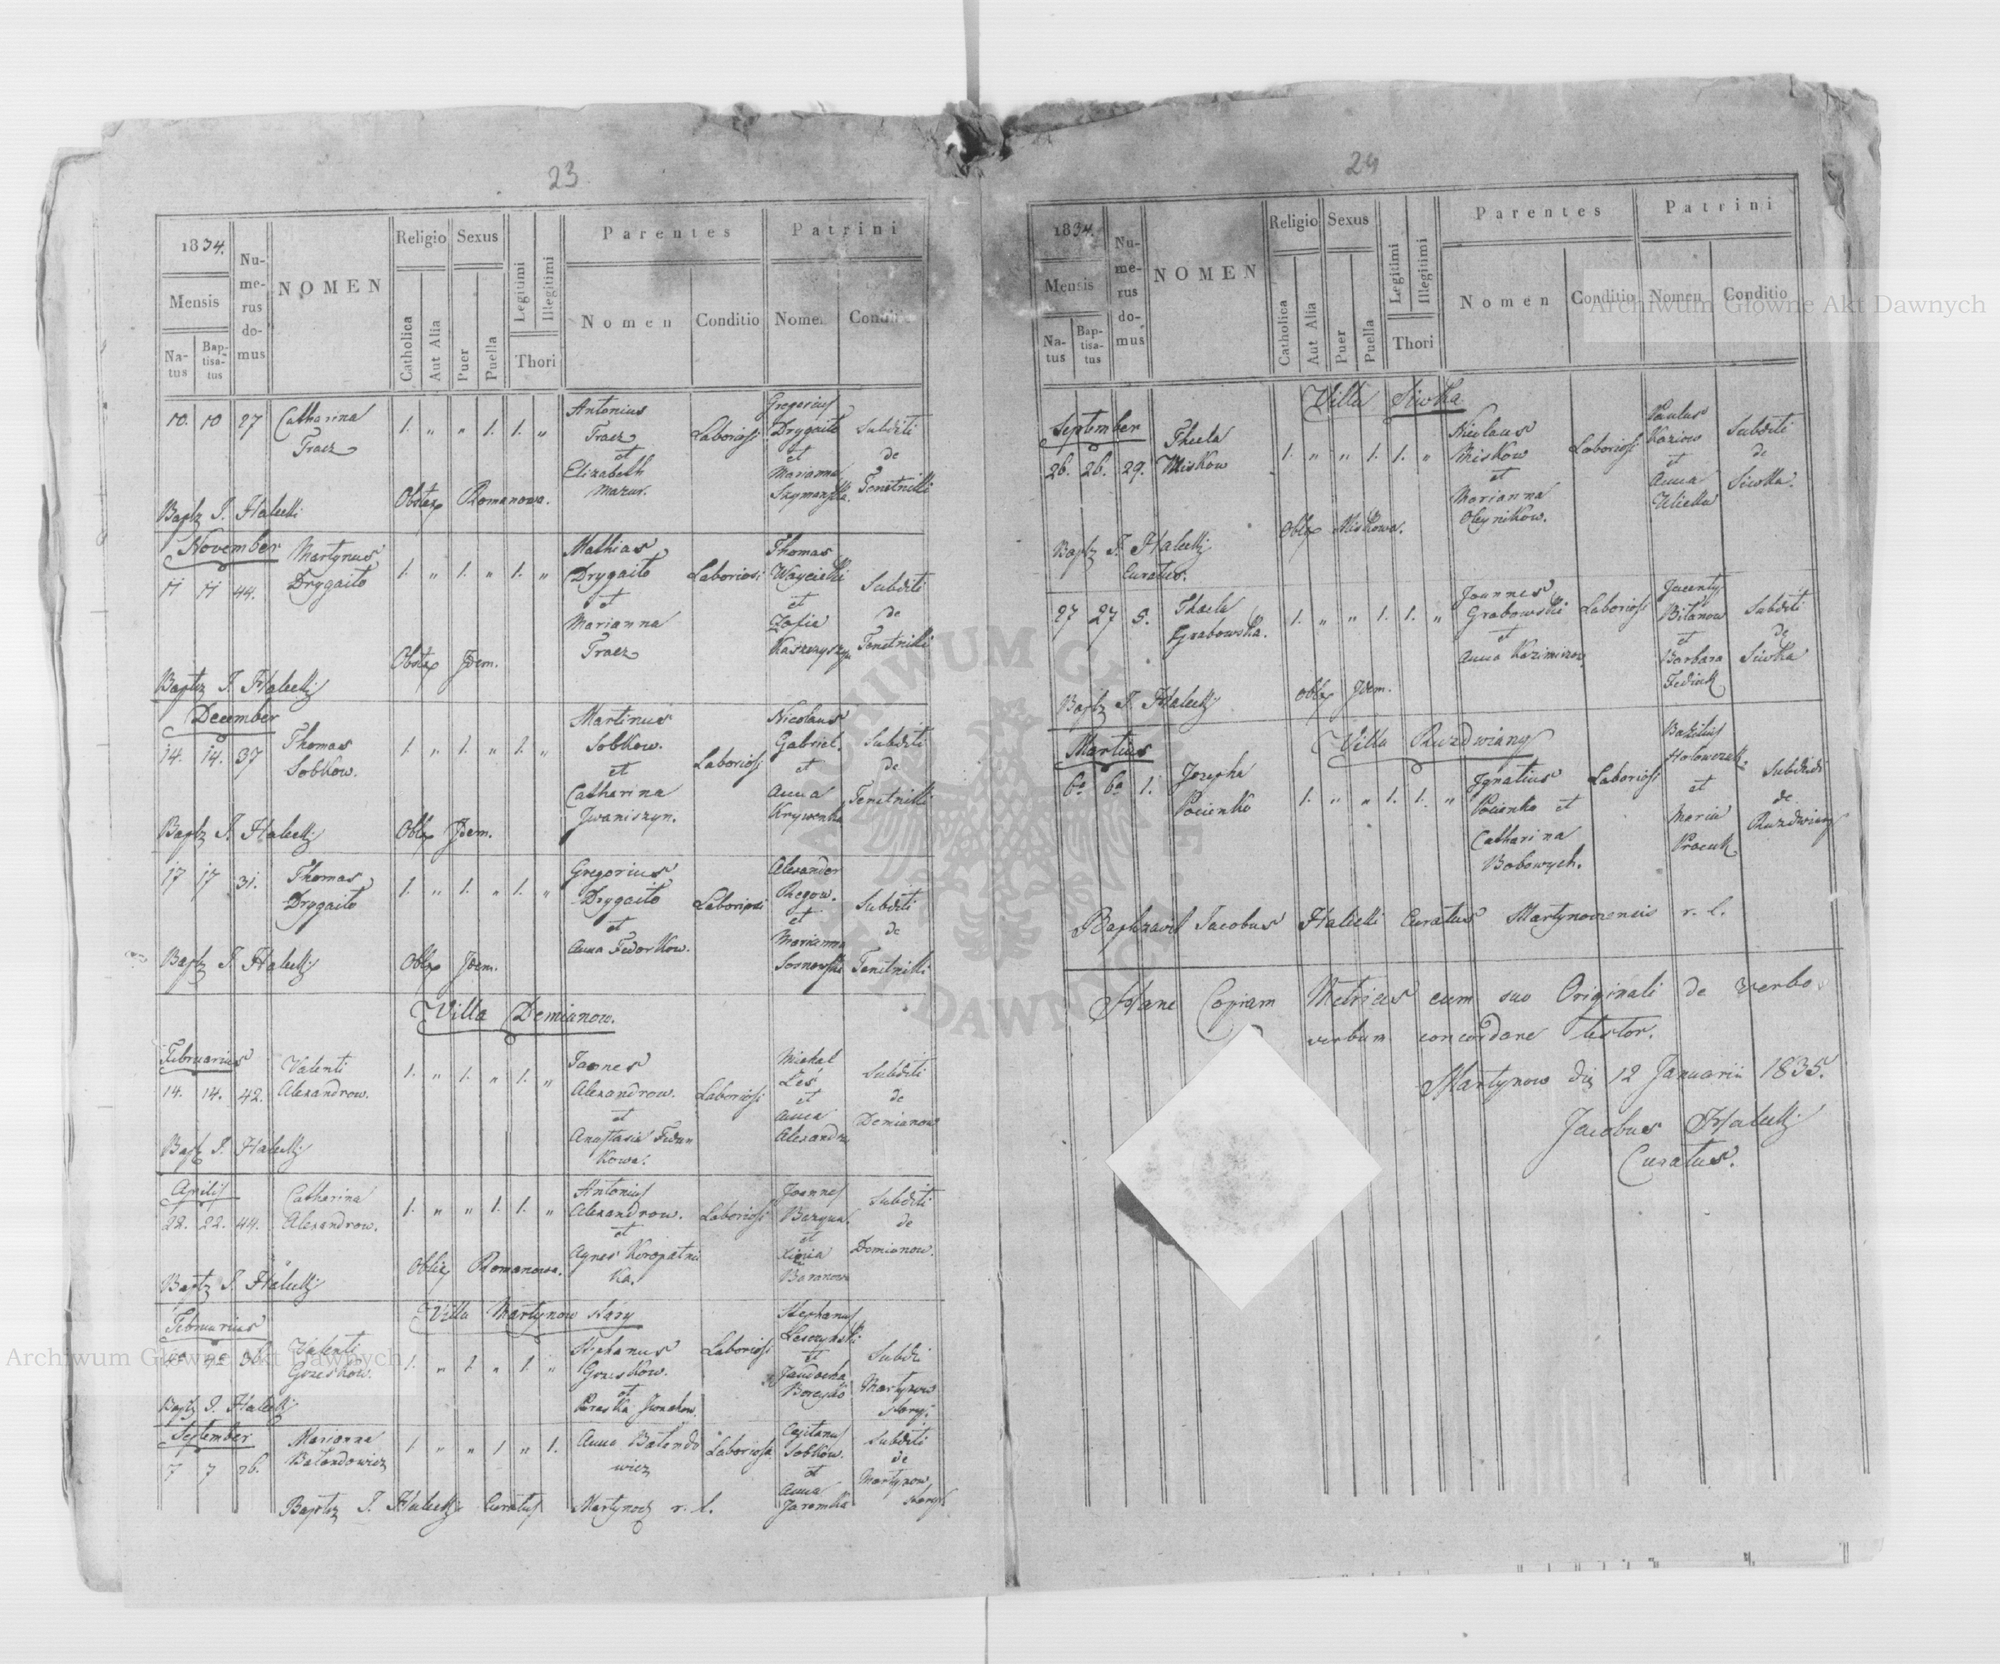 23
1834.
Mensis
Na-
tus
Bap-
tisa-
tus
Nu-
me-
rus
do-
mus
NOMEN
Religio
Catholica
Aut Alia
Sexus
Puer
Puella
Legitimi
Illegitimi
Thori
Parentes
Nomen
Conditio
Patrini
Nomen
Conditio
10. 10 27 Catharina Tracz 1. „ „ 1. 1. „
Antonius
Tracz
et
Elizabeth
Mazur.
Laboriosi
Gregorius
Drygaito
et
Marianna
Szymanska.
Subditi
de
Tenetniki
Baptz J. Halecki Obstex Romanowa.
November
17 17 44. Martynus Drygaito 1. „ 1. „ 1. „
Mathias
Drygaito
et
Marianna
Tracz
Laboriosi
Thomas
et
Zofia
Subditi
de
Tenetniki
Baptz J. Halecki Obstex Jdem.
December
14. 14. 37 Thomas Sobkow. 1. „ 1. „ 1. „
Martinus
Sobkow.
et
Catharina
Jwaniszyn.
Laboriosi
Nicolaus
Gabriel
et
Anna
Subditi
de
Tenetniki
Baptz J. Halecki Obstx Jdem.
17 17 31. Thomas Drygaito 1. „ 1. „ 1. „
Gregorius
Drygaito
et
Anna Fedorkow.
Laboriosi
Alexander
et
Marianna
Sosnowska
Subditi
de
Tenetniki
Baptz J Halecki Obstx Jdem.
Villa Demianow.
Februarius
14. 14. 42. Valenti Alexandrow. 1. „ 1. „ 1. „
Joannes
Alexandrow.
et
Anastasia Fedun
kowa.
Laboriosi
Michal
Leś
et
Anna
Subditi
de
Demianow
Baptz J. Halecki
Aprilis
22. 22. 44. Catharina Alexandrow. 1. „ „ 1. 1. „
Antonius
Alexandrow.
et
Agnes Koropatnic
ka.
Laboriosi
Joannes
et
Baranowa
Subditi
de
Demianow.
Baptz J. Halecki Romanowa.
Villa Martynow stary
Februarius
36. Valenti Grzeskow. 1. „ 1. „ 1. „
Stephanus
Grzeskow.
et
Laboriosi
Stephanus
Leszczynski
et
Subdi
Martynow
Stary.
Baptz J. Halecki
September
7 7 26. Marianna Balandowicz 1. „ „ 1 „ 1.
Anna Balando
wicz
Laboriosa
Cajetanus
Sobkow.
et
Anna
Jaremka
Subditi
de
Martynow
stary
Baptz J. Halecki Curatus r. l.
24
1834.
Mensis
Na-
tus
Bap-
tisa-
tus
Nu-
me-
rus
do-
mus
NOMEN
Religio
Catholica
Aut Alia
Sexus
Puer
Puella
Legitimi
Illegitimi
Thori
Parentes
Nomen
Conditio
Patrini
Nomen
Conditio
Villa Siwka
September
26. 26. 29. Thecla Miskow 1. „ „ 1. 1. „
Nicolaus
Miskow
et
Marianna
Oleynikow.
Laboriosi
Paulus
et
Anna
Subditi
de
Siwka.
Baptz J. Halecki Obstx Miskowa.
Curatus.
27 27 5. Thecla Grabowska. 1. „ „ 1. 1. „
Joannes
Grabowski
et
Laboriosi
Jacenty
Bilanow
et
Barbara
Subditi
de
Siwka
Baptz J. Halecki Obstx Jdem.
Villa Ruzdwiany
Martius
6a 6a 1. Jozepha Pocienko 1. „ „ 1. 1. „
Jgnatius
Pocienko et
Catharina
Bobowych.
Laboriosi
Bazilius
et
Maria
Procuk
Subditi
de
Ruzdwiany
Baptizavit Jacobus Halecki Curatus Martynowensis r. l.
Hanc Copiam Metrices cum suo Originali de verbo
verbum concordare testor.
Martynow die 12 Januarii 1835.
Jacobus Halecki
Curatus.
Archiwum Główne Akt Dawnych
Archiwum Główne Akt Dawnych
ARCHIWUM GŁÓWNE AKT DAWNYCH